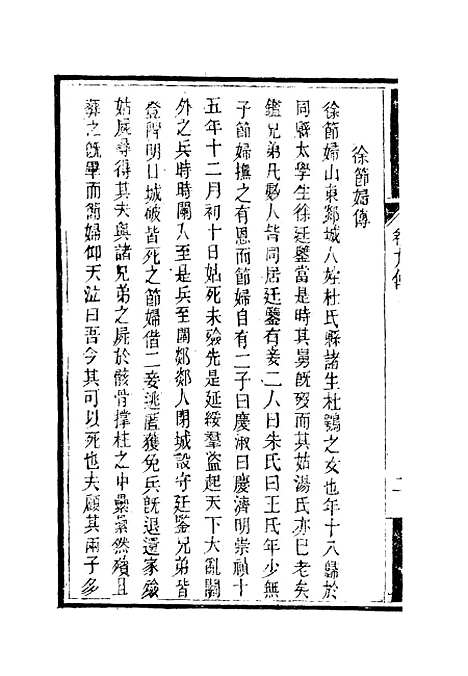 徐節婦傳
徐節婦山東郯城人姓杜氏縣諸生杜鶚之女也年十八歸於
同縣太學生徐廷鑒當是時其舅旣歿而其姑湯氏亦已老矣
鑑兄弟凡夥人皆同居廷鑒有妾二人曰朱氏曰王氏年少無
子節婦撫之有恩而節婦自有二子曰慶淑曰慶濟明崇禎十
五年十二月初十日姑死未殮先是延綏羣盜起天下大亂關
外之兵時時闌入至是兵至圍郯郯人閉城設守廷鑒兄弟皆
登陴明日城破皆死之節婦偕二妾逃匿獲免兵旣退還家殮
姑屍尋得其夫與諸兄弟之屍於骸骨撑柱之中纍纍然殯且
葬之旣畢而節婦仰天泣曰吾今其可以死也夫顧其兩子多